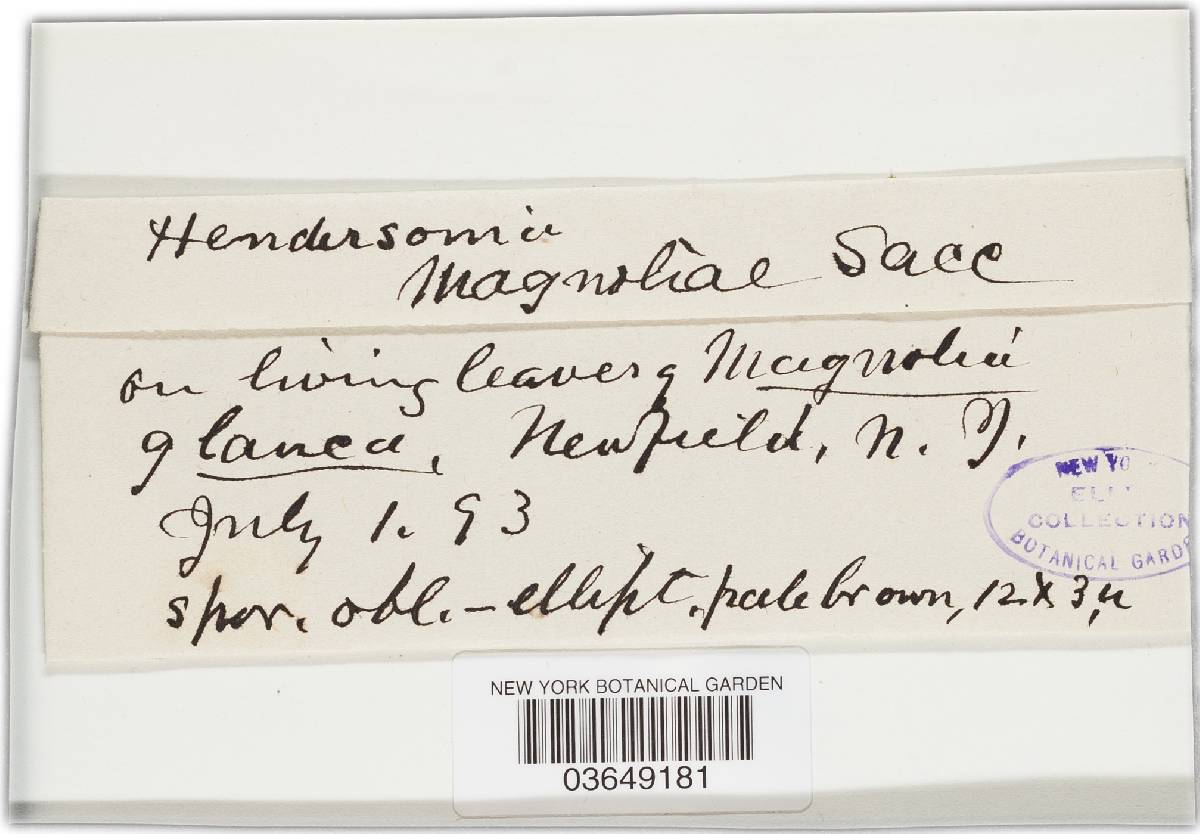 Hendersonia
Magnoliae Sacc
on living leaves of Magnolia
glauca, Newfield, N. J.
July 1. 93
spor. obl.-ellipt. pale brown, 12 x 3 µ
NEW YO
COLLECTION
BOTANICAL GARDE
NEW YORK BOTANICAL GARDEN
03649181